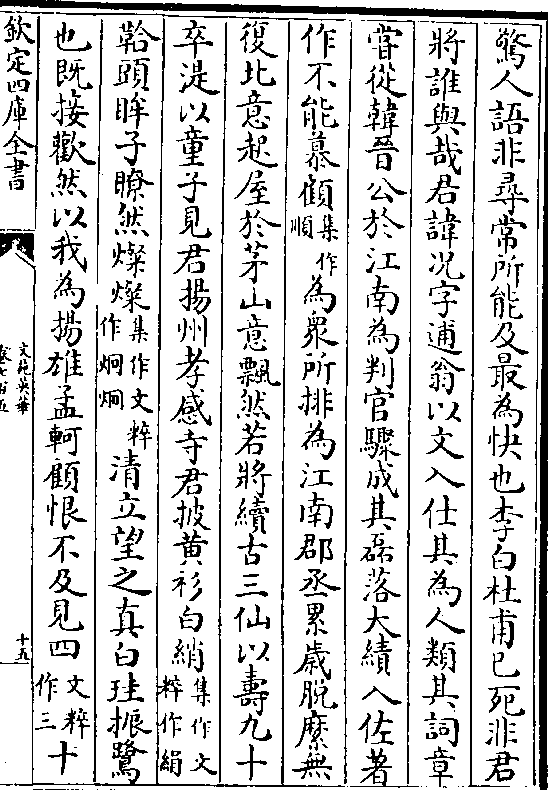 驚人語非尋常所能及最為快也李白杜甫已死非君
將誰與哉君諱况字逋翁以文入仕其為人類其詞章
嘗從韓晉公於江南為判官驟成其磊落大績入佐著
作不能慕顧集作順為衆所排為江南郡丞累歲脱縻無
復北意起屋於茅山意飄然若將續古三仙以壽九十
卒湜以童子見君揚州孝感寺君披黄衫白絹集作文粹作絹
鞈頭眸子瞭然燦燦集作文粹作炯炯清立望之真白珪振鷺
也既接歡然以我為揚雄孟軻顧恨不及見四文粹作三十
欽定四庫全書
文苑英華
卷七百五
十五